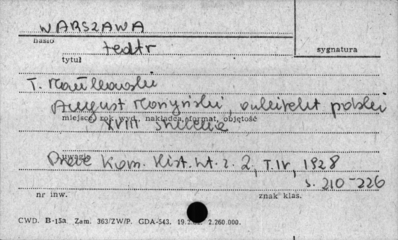 WARSZAWA
hasło
teatr
tytuł
sygnatura
T. Mańkowski
August Moszyński, architekt polski
miejsce, rok wyd., nakładca, format, objętość
XVIII stulecia
uwagi
Prace Kom. Hist. Szt. z. 2, T. IV, 1928
s. 210-226
nr inw.
znak klas.
CWD. B-15a. Zam. 363/ZW/P. GDA-543. 2.260.000.